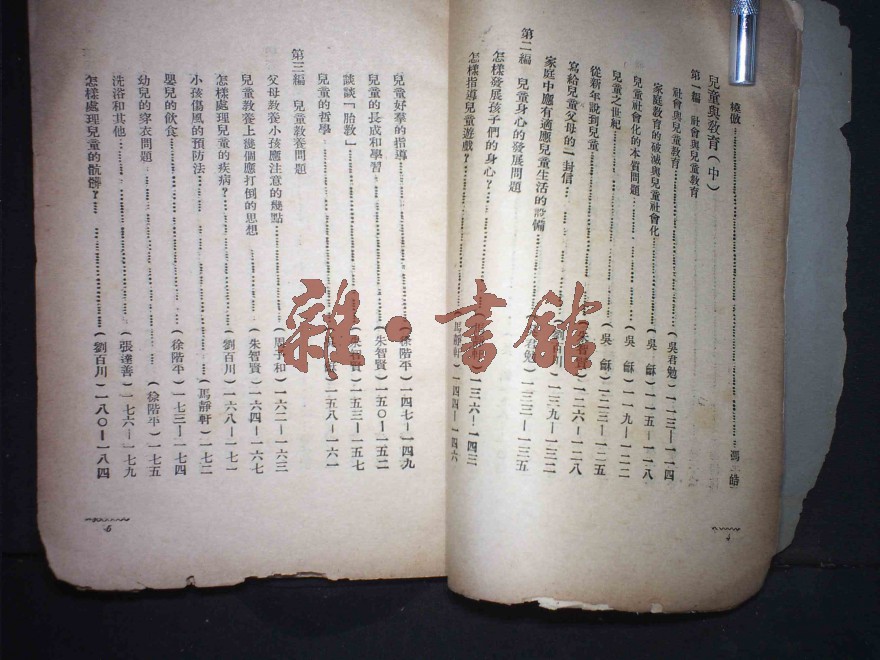 模倣……馮 皓
兒童與教育(中)
第一編 社會與兒童教育
社會與兒童教育……(吳君勉)一一三—一一四
家庭教育的破滅與兒童社會化……(吳 龢)一一五—一一八
兒童社會化的本質問題……(吳 龢)一一九—一二二
兒童之世紀……(吳 龢)一二三—一二五
從新年說到兒童……一二六—一二八
寫給兒童父母的一封信……一二九—一三二
家庭中應有適應兒童生活的設備……君勉)一三三—一三五
第二編 兒童身心的發展問題
怎樣發展孩子們的身心?……一三六—一四三
怎樣指導兒童遊戲?……馬靜軒)一四四—一四六
兒童好羣的指導……(徐階平)一四七—一四九
兒童的長成和學習……(朱智賢)一五〇—一五二
談談「胎教」……智賢)一五三—一五七
兒童的哲學……一五八—一六一
第三編 兒童教養問題
父母教養小孩應注意的幾點……(周子和)一六二—一六三
兒童教養上幾個應打倒的思想……(朱智賢)一六四—一六七
怎樣處理兒童的疾病?……(劉百川)一六八—一七一
小孩傷風的預防法……(馬靜軒)一七二
嬰兒的飲食……(徐階平)一七三—一七四
幼兒的穿衣問題……(徐階平)一七五
洗浴和其他……(張達善)一七六—一七九
怎樣處理兒童的骯髒?……(劉百川)一八〇—一八四
雜·書館